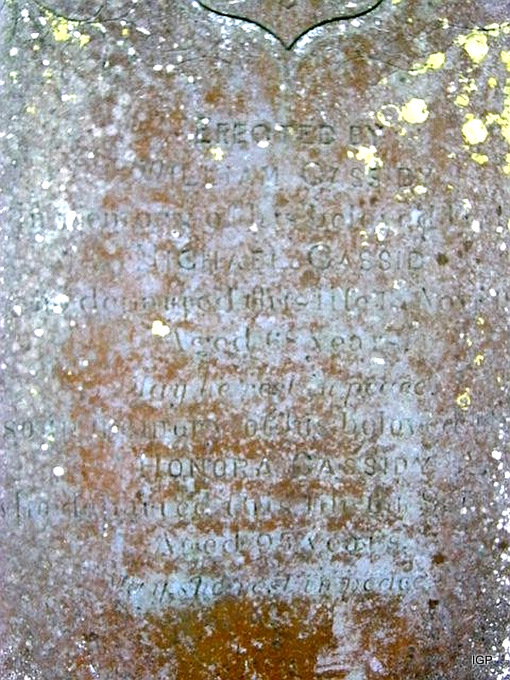 ERECTED BY
WILLIAM CASSIDY
In memory of his beloved
MICHAEL CASSIDY
who departed this life
Aged years
May he rest in peace.
Also in memory of his beloved
HONORA CASSIDY
who departed this life
Aged 95 years.
May she rest in peace.
IGP